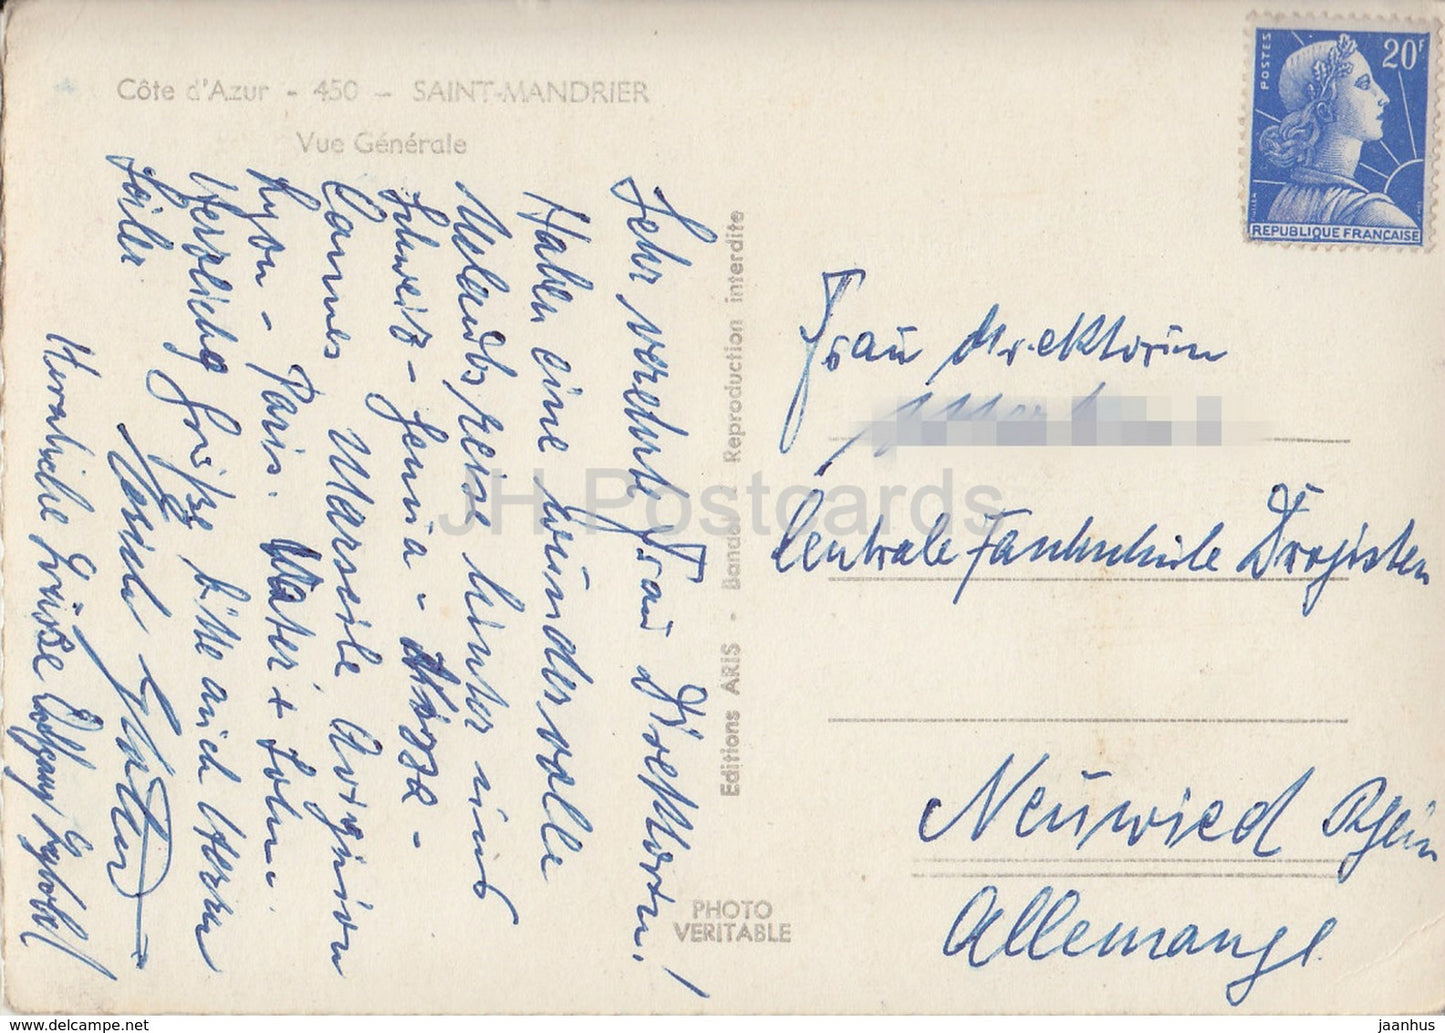 Côte d'Azur - 450 - SAINT-MANDRIER
Vue Générale
Sehr verehrte Frau Direktorin!
Haben eine wundervolle
Urlaubsreise hinter uns
Schweiz - Genua - Nizza -
Cannes Marseile Avignion
Lyon - Paris. Vater + Sohn.
Herzliche Grüße bitte auch Herrn
Seiler
Herzliche Grüße Wolfgang
Editions ARIS - Bandol - Reproduction interdite
PHOTO
VERITABLE
POSTES
20F
REPUBLIQUE FRANÇAISE
Frau Direktorin
Centrale Fachschule Drogisten
Neuwied Rhein
Allemange
JH Postcards
www.delcampe.net
jaanhus